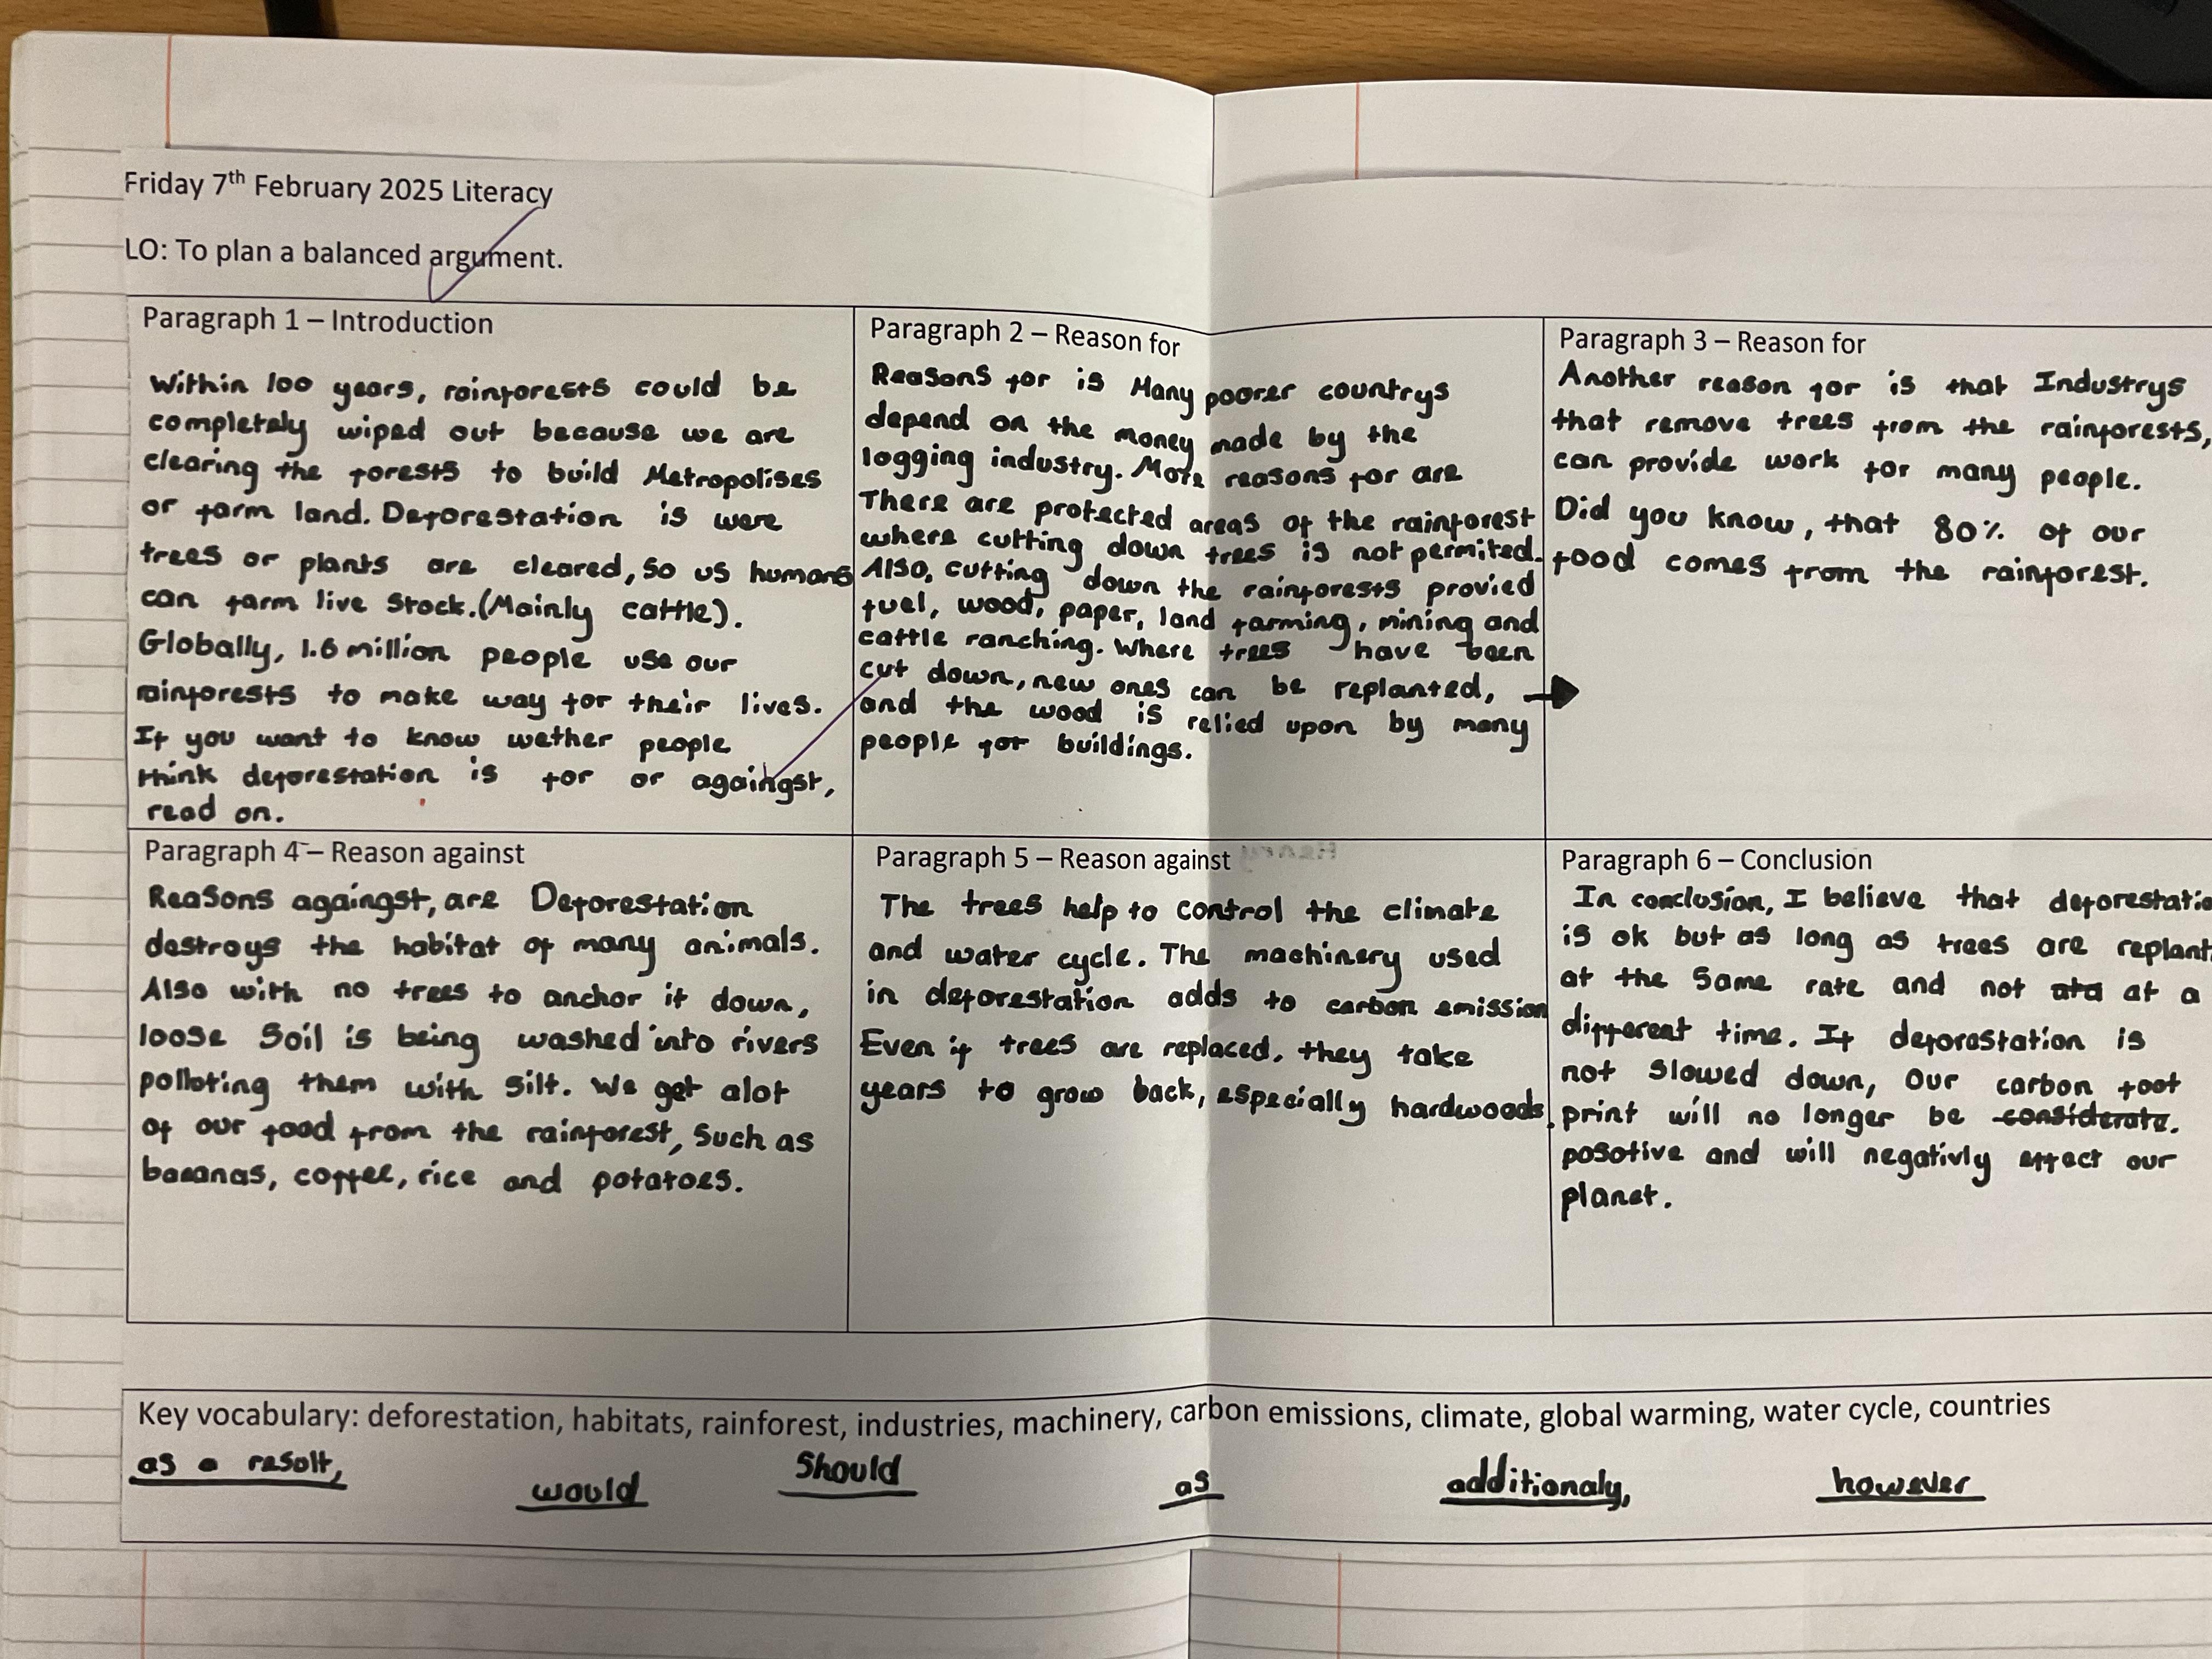 Friday 7th February 2025 Literacy
LO: To plan a balanced argument.
Paragraph 1 – Introduction
Within 100 years, rainforests could be
completely wiped out because we are
clearing the forests to build Metropolises
or farm land. Deforestation is were
trees or plants are cleared, so us humans
can farm live stock. (Mainly cattle).
Globally, 1.6 million people use our
rainforests to make way for their lives.
If you want to know wether people
think deforestation is for or againgst,
read on.
Paragraph 2 – Reason for
Reasons for is Many poorer countrys
depend on the money made by the
logging industry. More reasons for are
There are protected areas of the rainforest
where cutting down trees is not permited.
Also, cutting down the rainforests provied
fuel, wood, paper, land farming, mining and
cattle ranching. Where trees have been
cut down, new ones can be replanted,
and the wood is relied upon by many
people for buildings.
Paragraph 3 – Reason for
Another reason for is that Industrys
that remove trees from the rainforests,
can provide work for many people.
Did you know, that 80% of our
food comes from the rainforest.
Paragraph 4 – Reason against
Reasons againgst, are Deforestation
destroys the habitat of many animals.
Also with no trees to anchor it down,
loose Soil is being washed into rivers
polloting them with silt. We get alot
of our food from the rainforest, such as
bananas, coffee, rice and potatoes.
Paragraph 5 – Reason against
The trees help to control the climate
and water cycle. The machinery used
in deforestation adds to carbon emission
Even if trees are replaced, they take
years to grow back, especially hardwoods.
Paragraph 6 – Conclusion
In conclusion, I believe that deforestatio
is ok but as long as trees are replant
at the same rate and not ata at a
different time. If deforestation is
not slowed down, our carbon foot
print will no longer be considerate.
posotive and will negativly effect our
planet.
Key vocabulary: deforestation, habitats, rainforest, industries, machinery, carbon emissions, climate, global warming, water cycle, countries
as a result, would Should as additionaly, however